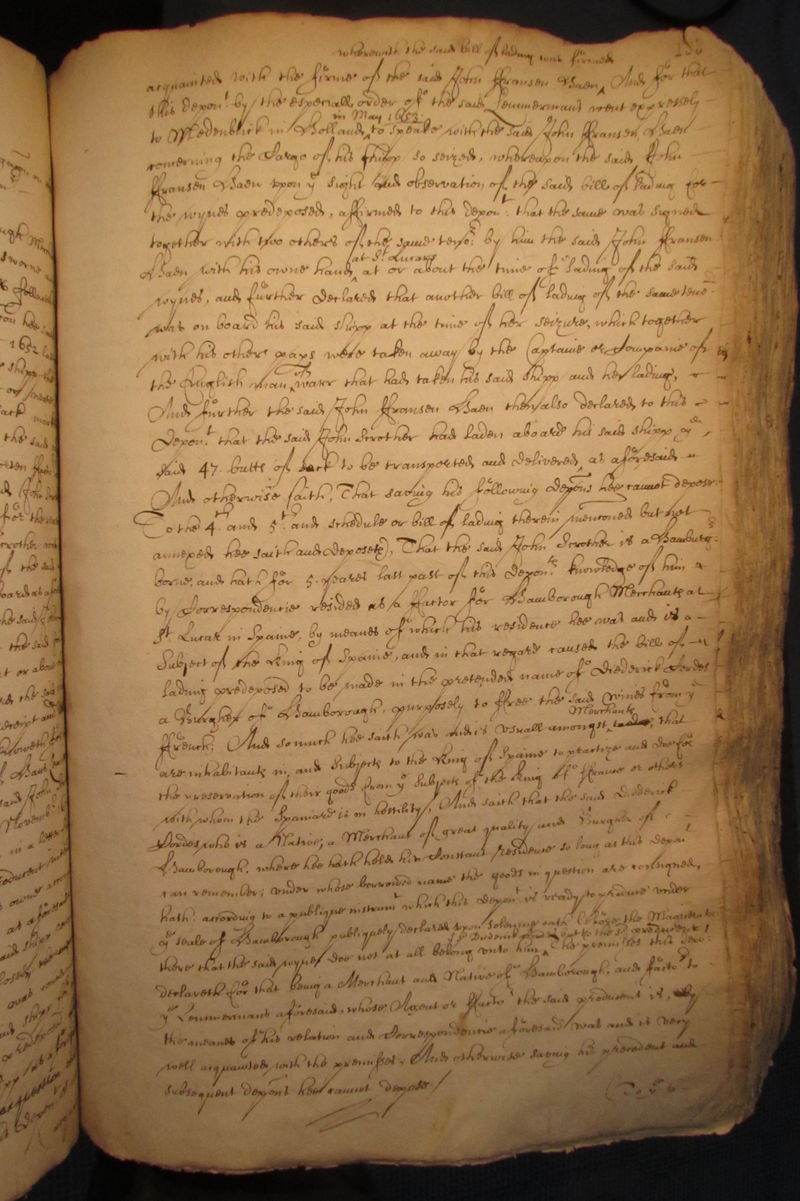 wherewith the said bill of lading was firmed
acquainted with the firme of the said John ffransen Baen, And for that
this depont by the especiall order of the said Lemmermans went expressely
in May 1653
to Medenblick in Holland to speake with the said John ffransen Baen
concerning the Cargo of his shipp so seized, whereupon the said John
ffransen Baen upon ye sight and observation of the said bill of lading for
the wynes predeposed, affirmed to this depont: that the same was signed
together with two others of the same tenor by him the said John ffransen
at St Lucars
Baen with his owne hand at or about the time of lading of the said
wynes, and further declared that another bill of lading of the same tenor
was on board his said shipp at the time of her seizure, which together
with his other paps were taken away by the Captaine or Companie of
the English man of warr that had taken his said shipp and her lading,
And further the said John ffransen Baen then also declared to this
depont that the said John Scrother had laden aboard his said shipp ye
said 47. butts of sack to be transported and delivered as aforesaid
And otherwise saith, That saving his following depons hee cannot depose
To the 4th and 5th and schedule or bill of lading therein mencioned but not
annexed hee saith and deposeth, That the said John Scrother is a Hamburger
borne, and hath for 5. yeares last past of this deponts knowledge of him
by Correspondencie resided as a factor for Hamborough Merchants at
St Lucar in Spaine, by meanes of which his residence hee was and is a
Subject of the King of Spaine, and in that regard caused the bill of
lading predeposed to be made in the pretended name of Diederick Cordes
a Burgher of Hamborough, purposely to ffree the said wines from ye
Merchants
ffrench; And so much hee saith was and is usuall amongst that
are inhabitants in, and Subjects to the King of Spaine to practize and doe for
the preservation of their goods from ye Subjects of the King of ffrance or others
with whom the Spaniard is in hostility, And saith that the said Diederick
Cordes who is a Native, a Merchant of great quality and Burgher of
Hamborough, where hee hath held his Constant residence so long as this depont
can remember; under whose borrowed name the goods in question are consigned,
hath according to a publique instrumt which this depont is ready to produce under
ye seale of Hamborough publiquely declared upon solemne oath before the Magistrate
there that the said wynes doe not at all belong unto him, The premisses this depot
declareth for that being a Merchant and Native of Hamborough, and factor to
ye Lemmermans aforesaid, whose Agent or factor the said producent is, by
the meanes of his relation and Correspondencie aforesaid was and is very
well acquainted with the premisses. And otherwise saving his precedent and
subsequent depons hee cannot depose/